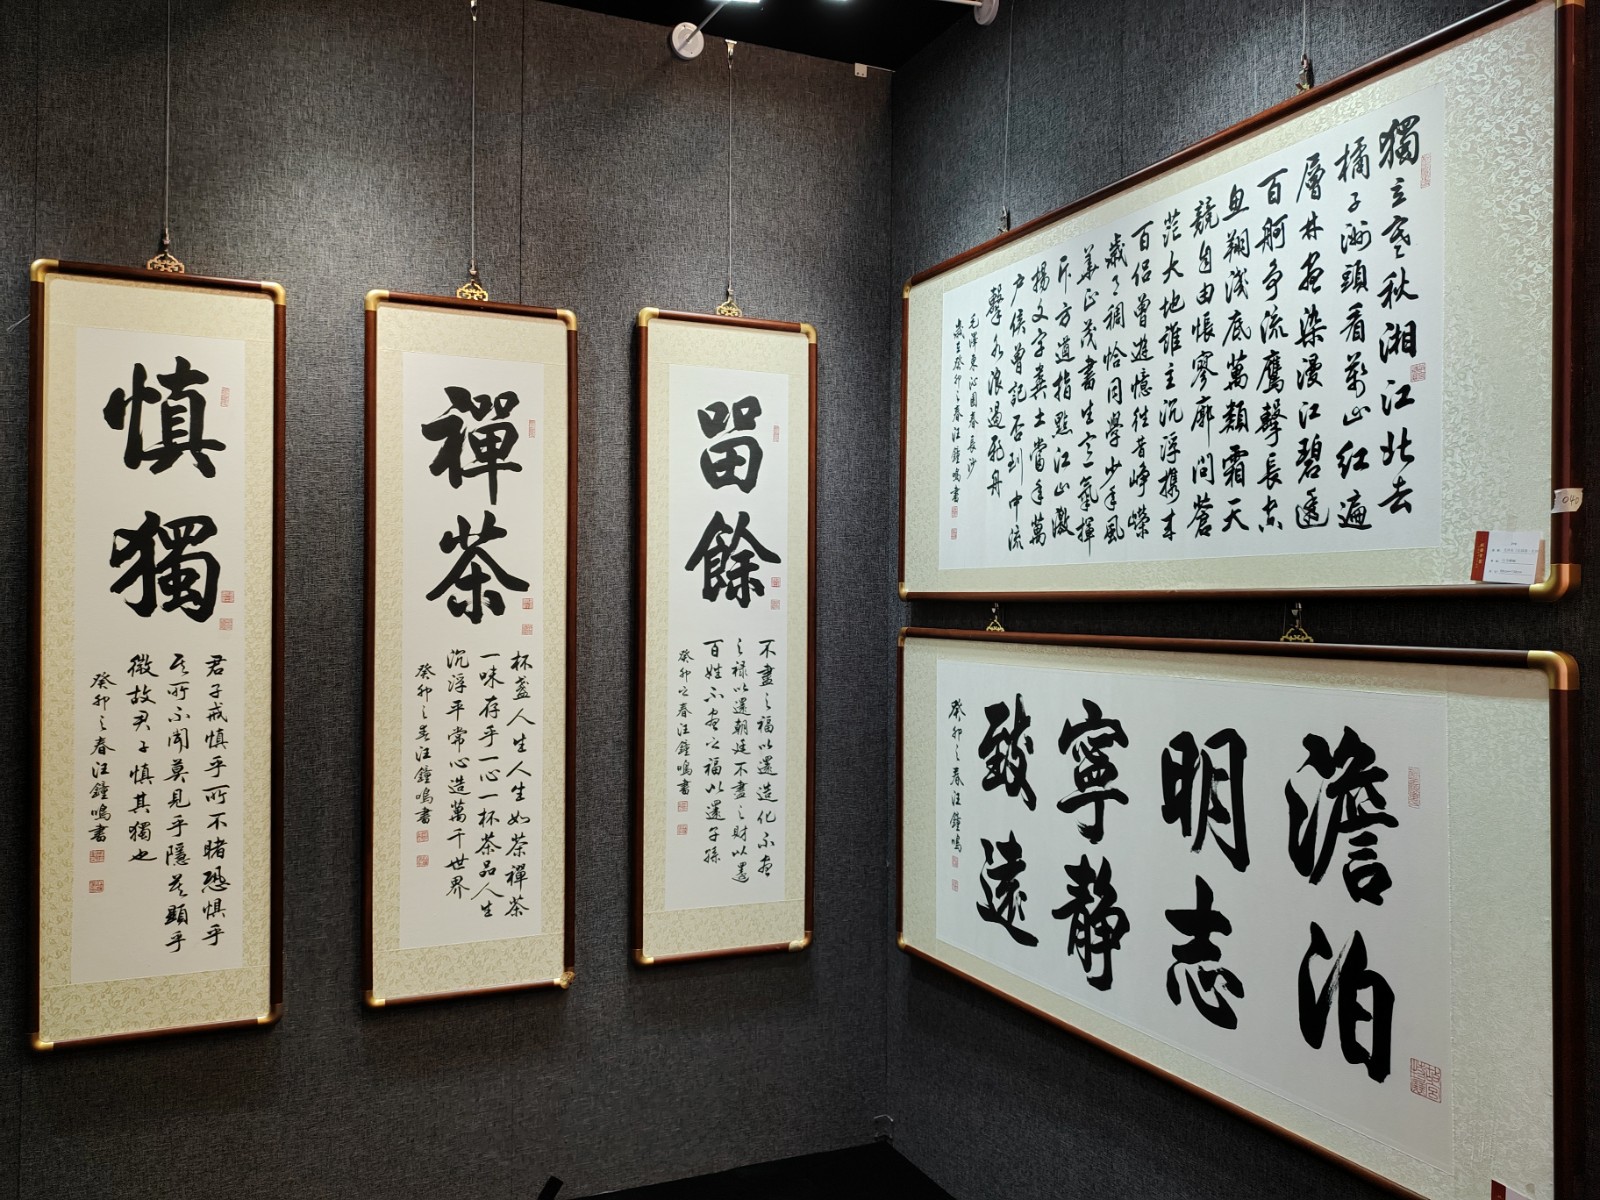 慎獨
君子戒慎乎所不睹恐惧乎
其所不闻莫見乎隱莫顯乎
微故君子慎其獨也
癸卯之春汪鐘鳴書
禪茶
杯盏人生人生如茶禪茶
一味存乎一心一杯茶品人生
沉浮平常心造萬千世界
癸卯之春汪鐘鳴書
留餘
不盡之福以還造化不盡
之禄以還朝廷不盡之財以還
百姓不盡之福以還子孫
癸卯之春汪鐘鳴書
獨立寒秋湘江北去
橘子洲頭看萬山红遍
層林盡染漫江碧透
百舸争流鹰擊長空
魚翔淺底萬類霜天
競自由悵寥廓問蒼
茫大地誰主沉浮携来
百侣曾遊憶往昔崢嶸
歲月稠恰同學少年風
華正茂書生意氣揮
斥方遒指點江山激
揚文字糞土當年萬
户侯曾記否到中流
擊水浪遏飛舟
毛澤東沁園春長沙
歲在癸卯之春汪鐘鳴書
澹泊
明志
寧静
致遠
癸卯之春汪鐘鳴
040